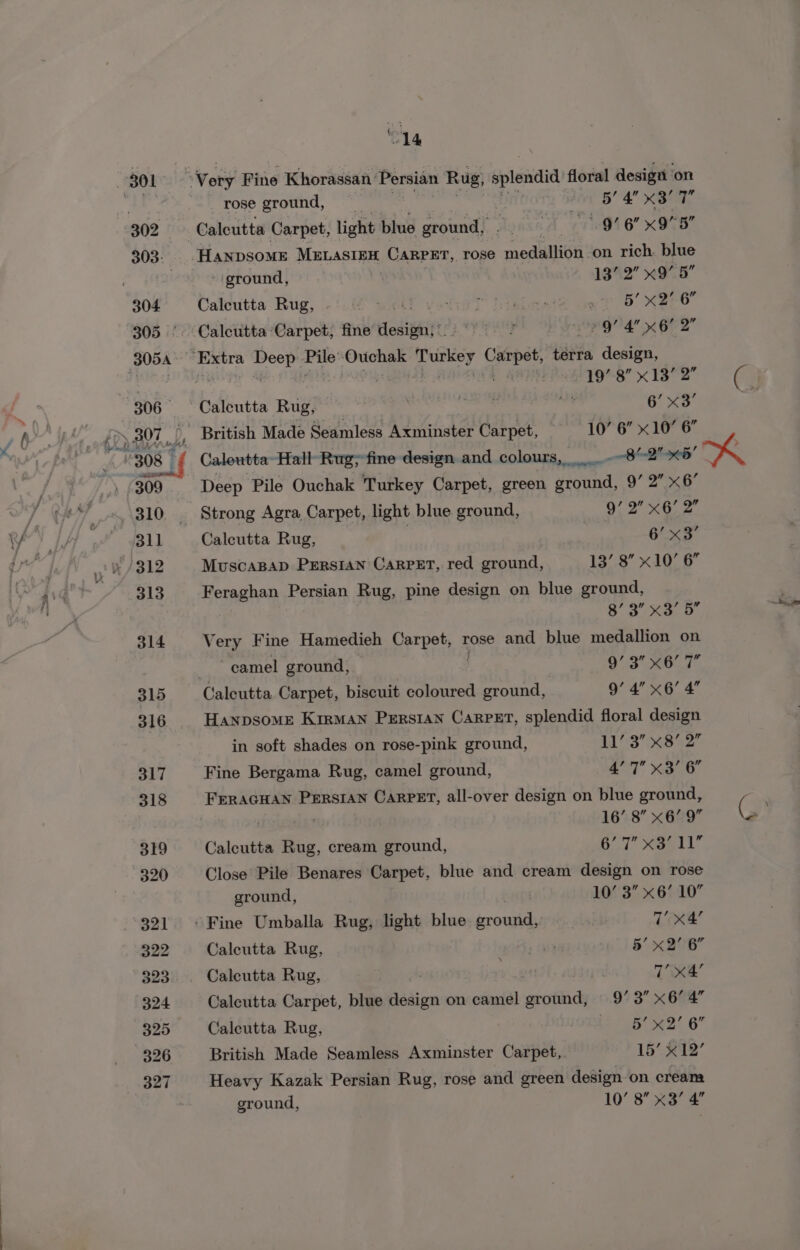 14
301 Very Fine Khorassan Persian Rug, splendid floral design on
rose ground, 5' 4" ×3' 7"
302 Calcutta Carpet, light blue ground, 9' 6" ×9' 5"
303 HANDSOME MELASIEH CARPET, rose medallion on rich blue
ground, 13' 2" ×9' 5"
304 Calcutta Rug, 5' ×2' 6"
305 Calcutta Carpet, fine design, 9' 4" ×6' 2"
305A Extra Deep Pile Ouchak Turkey Carpet, terra design,
19' 8" ×13' 2"
306 Calcutta Rug, 6' ×3'
307 British Made Seamless Axminster Carpet, 10' 6" ×10' 6"
308 Calcutta Hall Rug, fine design and colours, 8' 2" ×5'
309 Deep Pile Ouchak Turkey Carpet, green ground, 9' 2" ×6'
310 Strong Agra Carpet, light blue ground, 9' 2" ×6' 2"
311 Calcutta Rug, 6' ×3'
312 MUSCABAD PERSIAN CARPET, red ground, 13' 8" ×10' 6"
313 Feraghan Persian Rug, pine design on blue ground,
8' 3" ×3' 5"
314 Very Fine Hamedieh Carpet, rose and blue medallion on
camel ground, 9' 3" ×6' 7"
315 Calcutta Carpet, biscuit coloured ground, 9' 4" ×6' 4"
316 HANDSOME KIRMAN PERSIAN CARPET, splendid floral design
in soft shades on rose-pink ground, 11' 3" ×8' 2"
317 Fine Bergama Rug, camel ground, 4' 7" ×3' 6"
318 FERAGHAN PERSIAN CARPET, all-over design on blue ground,
16' 8" ×6' 9"
319 Calcutta Rug, cream ground, 6' 7" ×3' 11"
320 Close Pile Benares Carpet, blue and cream design on rose
ground, 10' 3" ×6' 10"
321 Fine Umballa Rug, light blue ground, 7' ×4'
322 Calcutta Rug, 5' ×2' 6"
323 Calcutta Rug, 7' ×4'
324 Calcutta Carpet, blue design on camel ground, 9' 3" ×6' 4"
325 Calcutta Rug, 5' ×2' 6"
326 British Made Seamless Axminster Carpet, 15' ×12'
327 Heavy Kazak Persian Rug, rose and green design on cream
ground, 10' 8" ×3' 4"